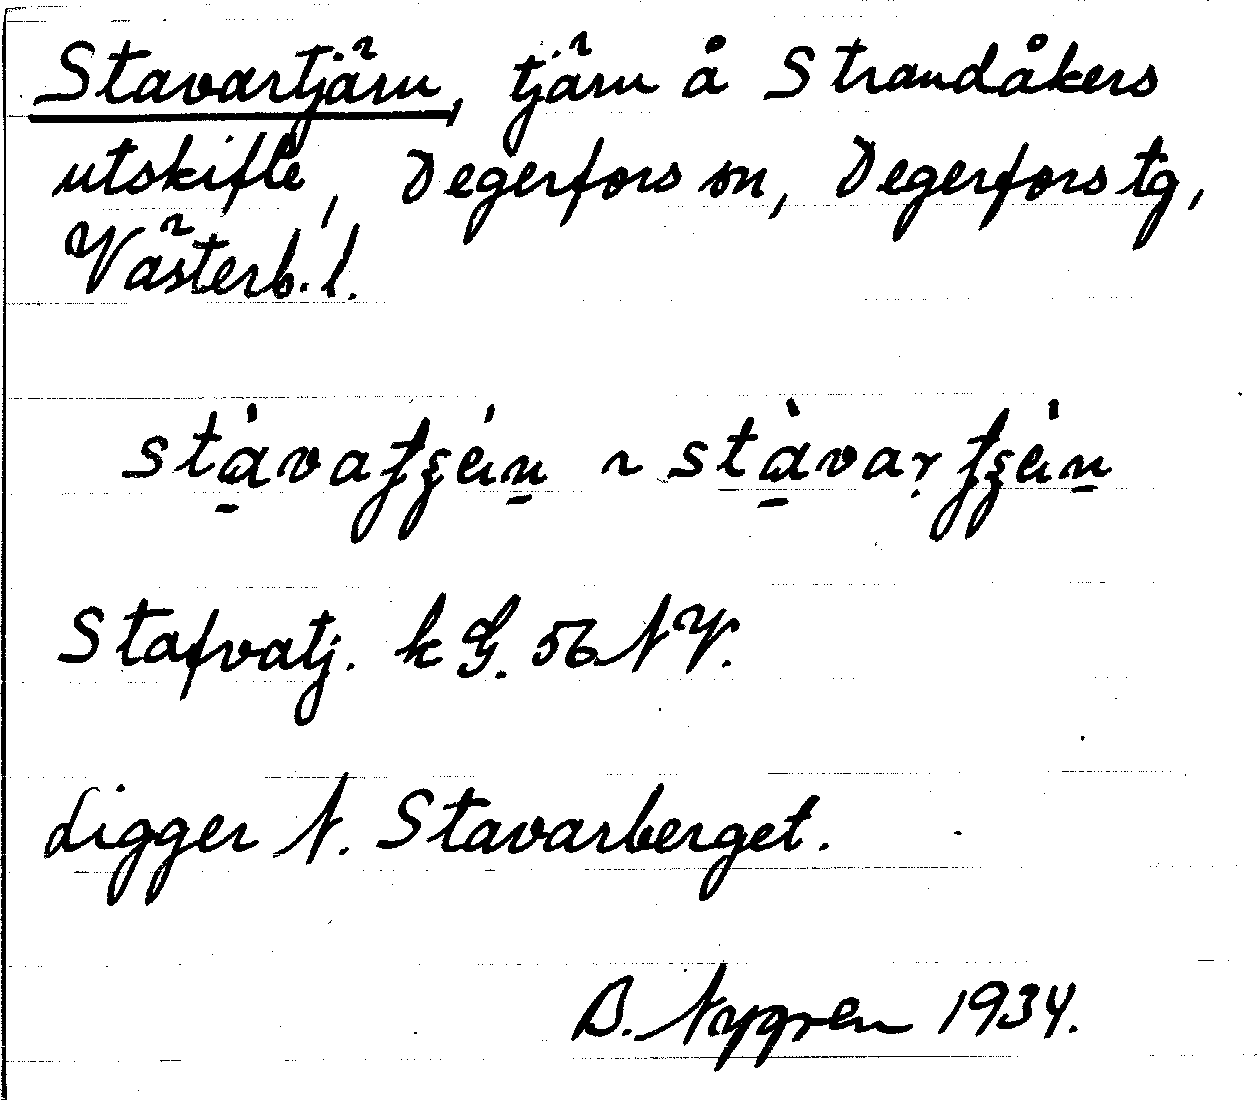 Stavartjärn, tjärn å Strandåkers
utskifte, Degerfors sn, Degerfors tg,
Västerb. l.
Stafvatj. k G. 56 NV.
Ligger N. Stavarberget.
B. Nygren 1934.